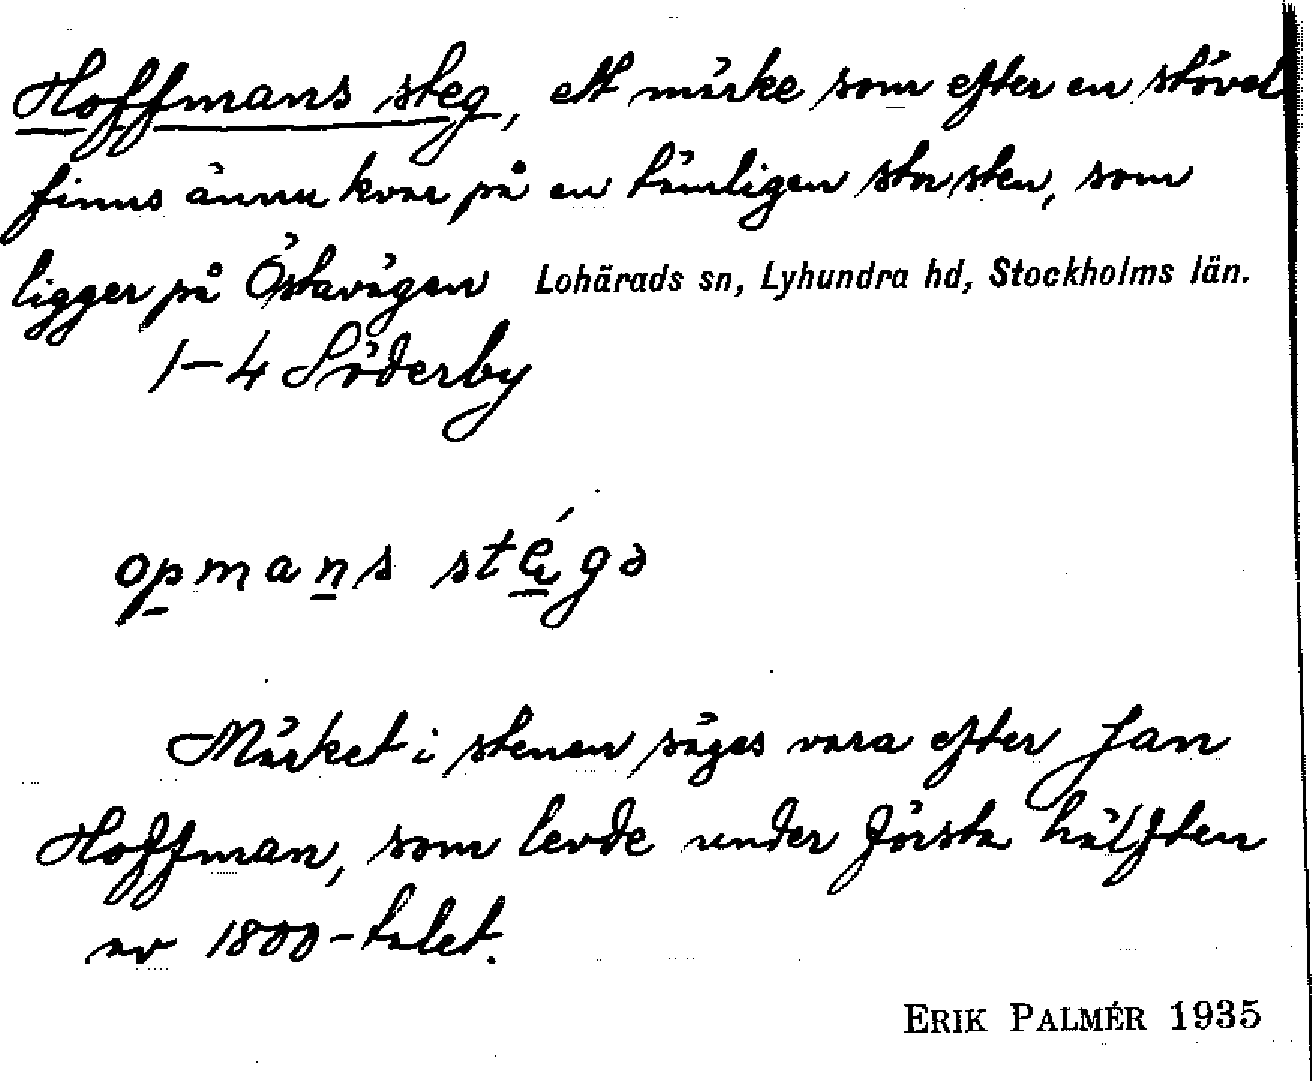 Hoffmans steg, ett märke som efter en stövel
finns ännu kvar på en tämligen stor sten, som
ligger på Östavägen Lohärads sn, Lyhundra hd, Stockholms län.
1-4 Söderby
opmans stégə
Märket i stenen säges vara efter Jan
Hoffman, som levde under första hälften
av 1800-talet.
ERIK PALMÉR 1935